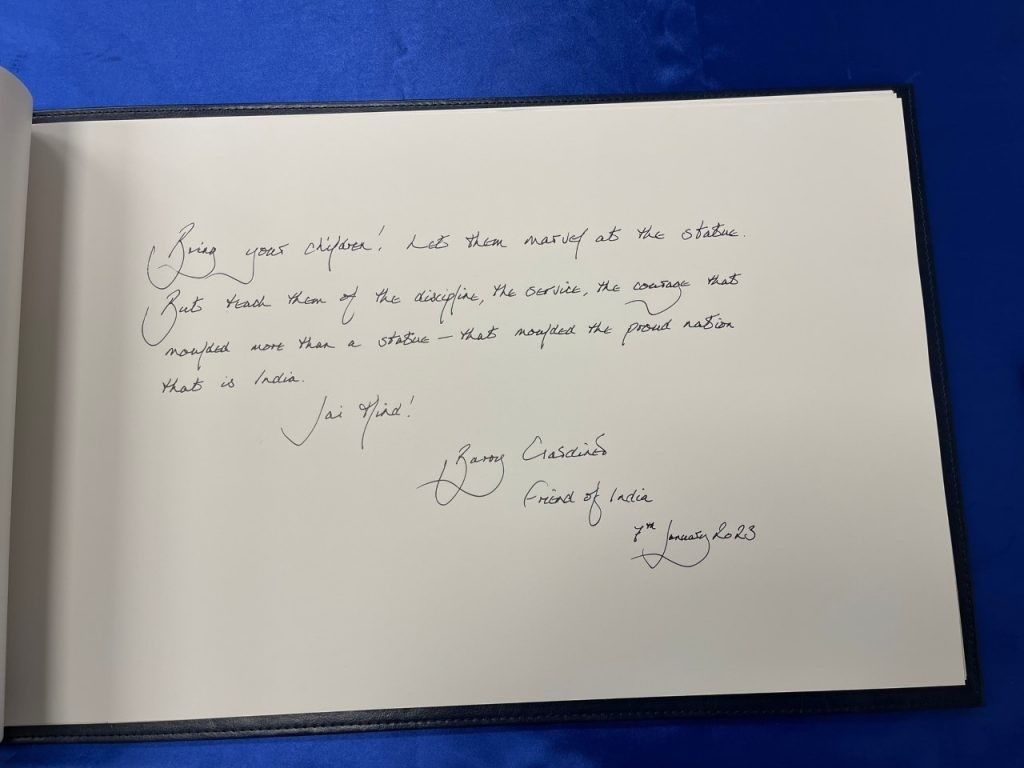 Bring your children! Let them marvel at the statue.
But teach them of the discipline, the service, the courage that
moulded more than a statue – that moulded the proud nation
that is India.
Jai Hind!
Barry Gardiner
Friend of India
7th January 2023